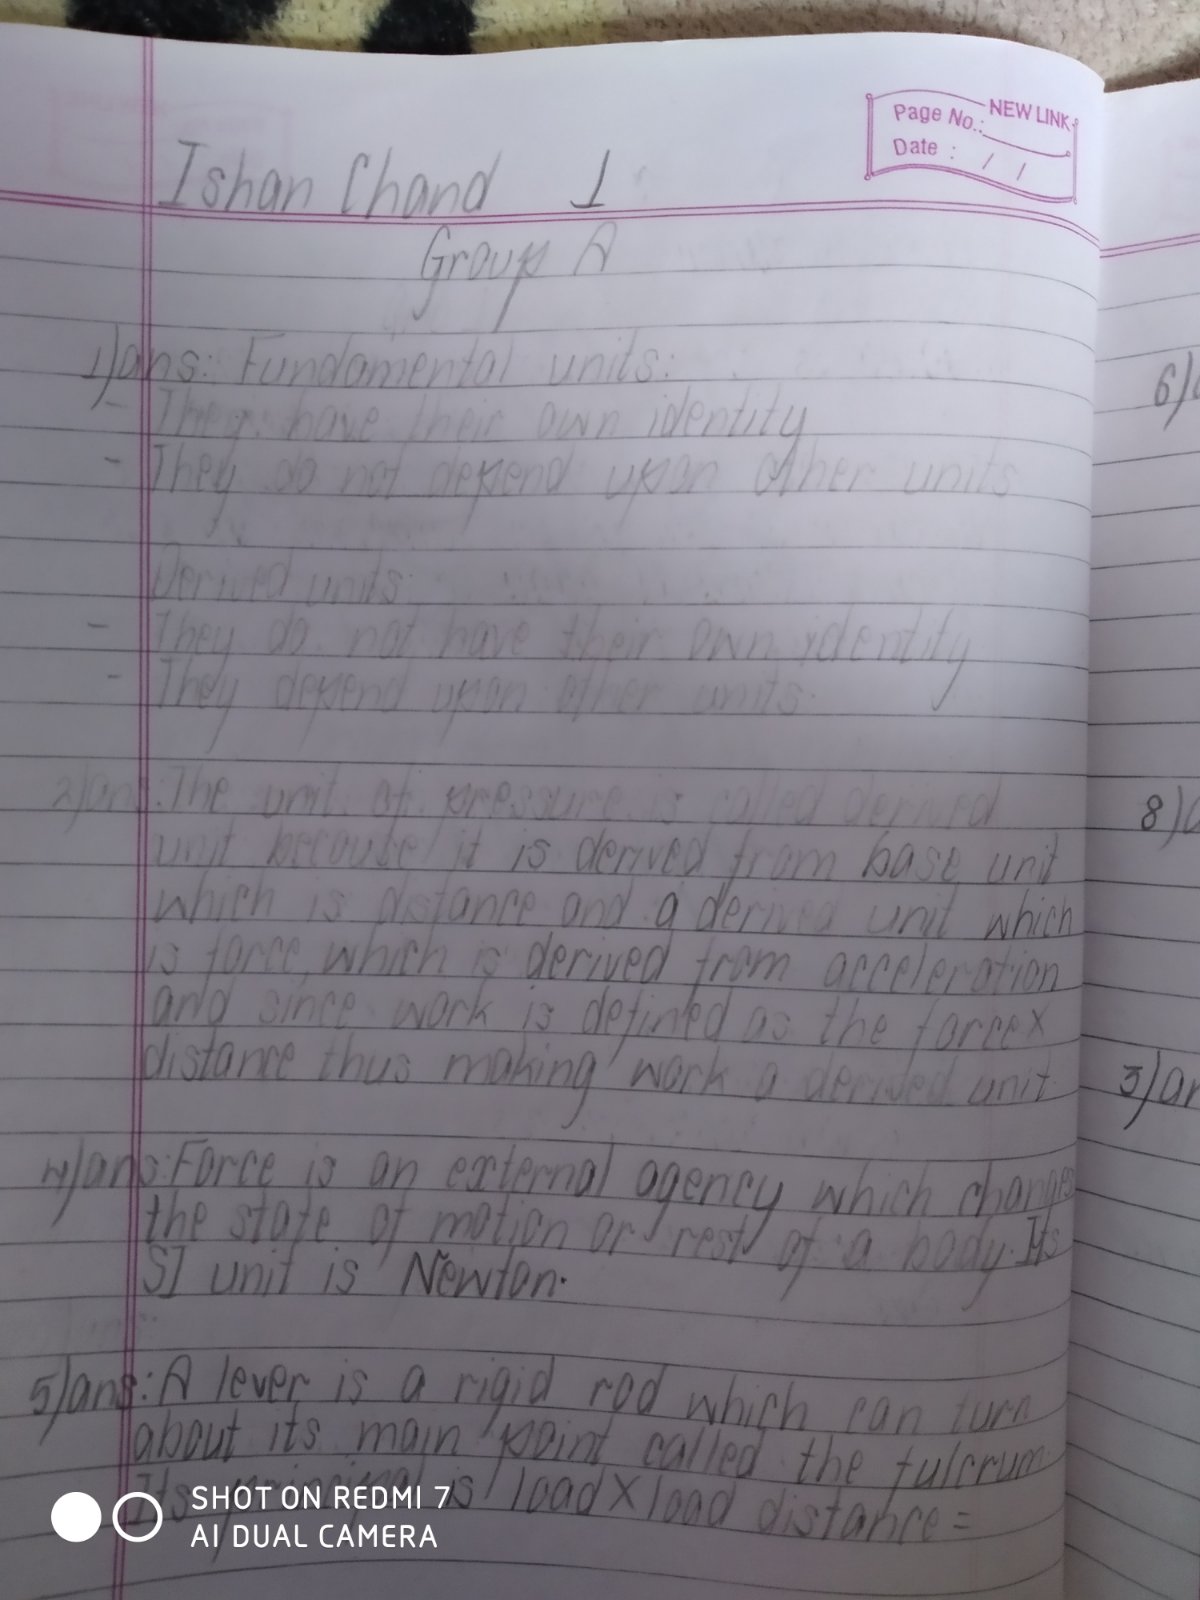 Page No.: NEW LINK
Date : / /
Ishan Chand 1
Group A
1)ans: Fundamental units:
- They have their own identity
- They do not depend upon other units
Derived units:
- They do not have their own identity
- They depend upon other units.
2)ans: The unit of pressure is called derived
unit because it is derived from base unit
which is distance and a derived unit which
is force, which is derived from acceleration
and since work is defined as the force x
distance thus making work a derived unit.
4)ans: Force is an external agency which changes
the state of motion or rest of a body. Its
SI unit is Newton.
5)ans: A lever is a rigid rod which can turn
about its main point called the fulcrum.
Its principal is load X load distance =
6)
8)
3)an
SHOT ON REDMI 7
AI DUAL CAMERA